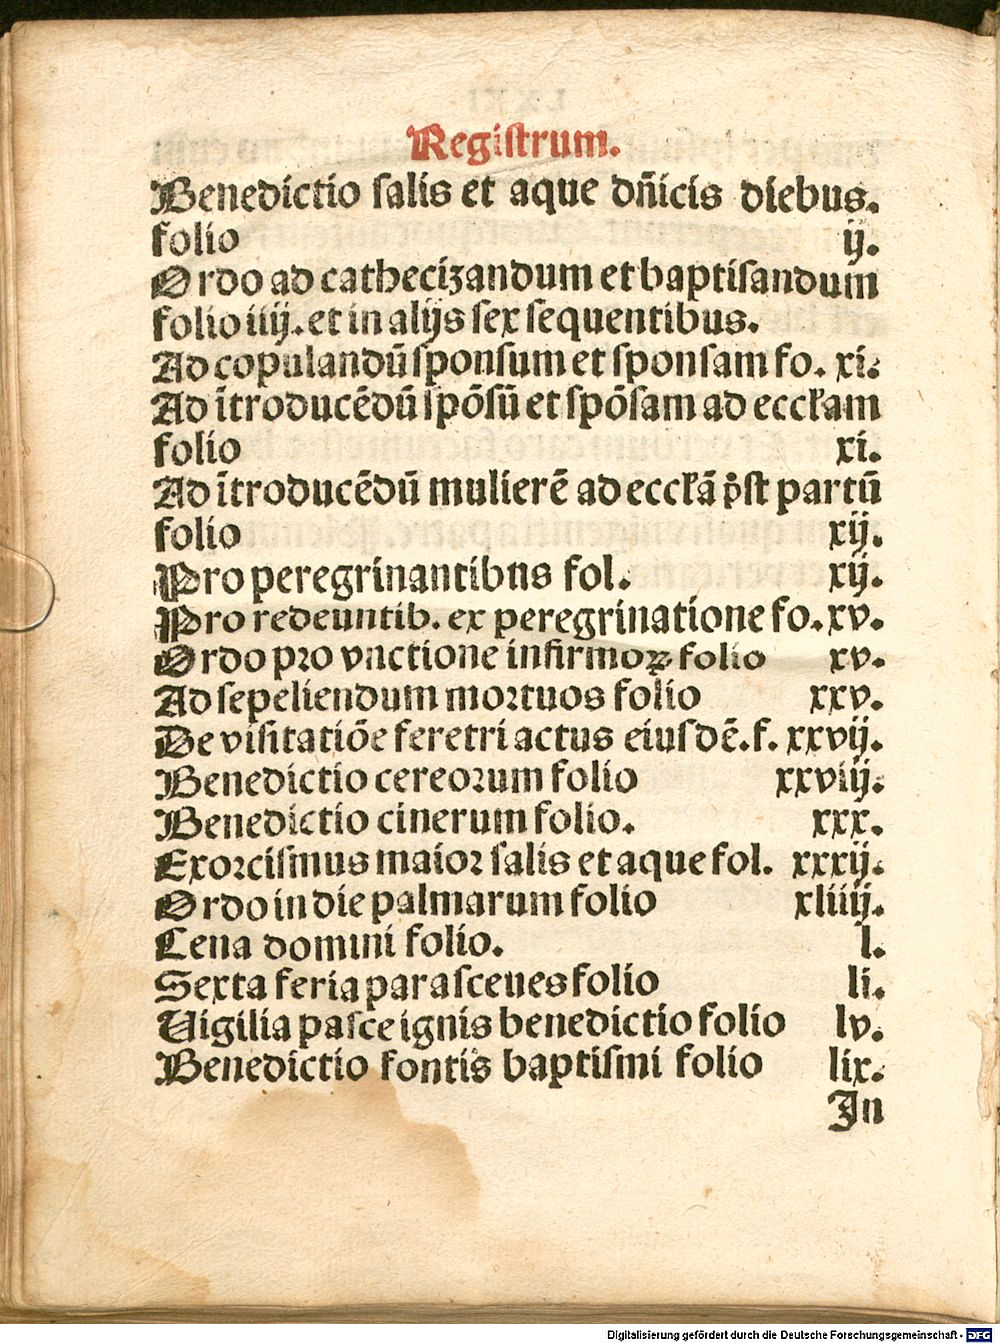 Registrum.
Benedictio ſalis et aque dn̄icis diebus.
folio ij.
Ordo ad cathecizandum et baptiſandum
folio iiij. et in alijs ſex ſequentibus.
Ad copulandū ſponſum et ſponſam fo. xi.
Ad ītroducēdū ſpōſū et ſpōſam ad eccłam
folio xi.
Ad ītroducēdū mulierē ad eccłā p̄ſt partū
folio xij.
Pro peregrinantibus fol. xij.
Pro redeuntib. ex peregrinatione fo. xv.
Ordo pꝛo vnctione infirmoꝝ folio xv.
Ad ſepeliendum moꝛtuos folio xxv.
De viſitatiōe feretri actus eiuſdē. f. xxvij.
Benedictio cereoꝛum folio xxviij.
Benedictio cinerum folio. xxx.
Exoꝛciſmus maioꝛ ſalis et aque fol. xxxij.
Ordo in die palmarum folio xliiij.
Cena domini folio. l.
Sexta feria paraſceues folio li.
Uigilia paſce ignis benedictio folio lv.
Benedictio fontis baptiſmi folio lix.
In
Digitalisierung gefördert durch die Deutsche Forschungsgemeinschaft - DFG